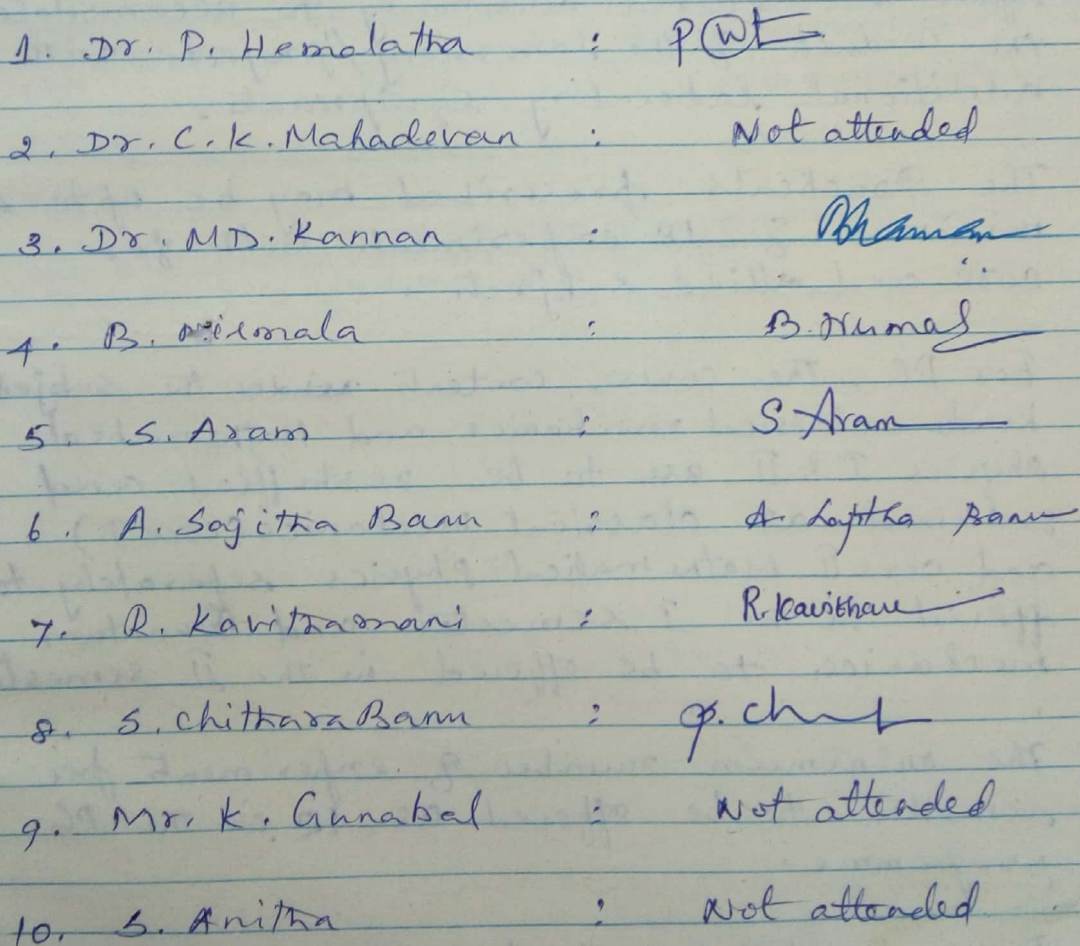 1. Dr. P. Hemalatha :
2. Dr. C. K. Mahadevan : Not attended
3. Dr. MD. Kannan :
4. B. Nirmala : B. Nirmal
5 S. Aram : S Aram
6. A. Sajitha Banu : A. Sajitha Banu
7. R. Kavithamani : R. Kavitham
8. S. Chithara Banu :
9. Mr. K. Gunabal : Not attended
10. S. Anitha : Not attended